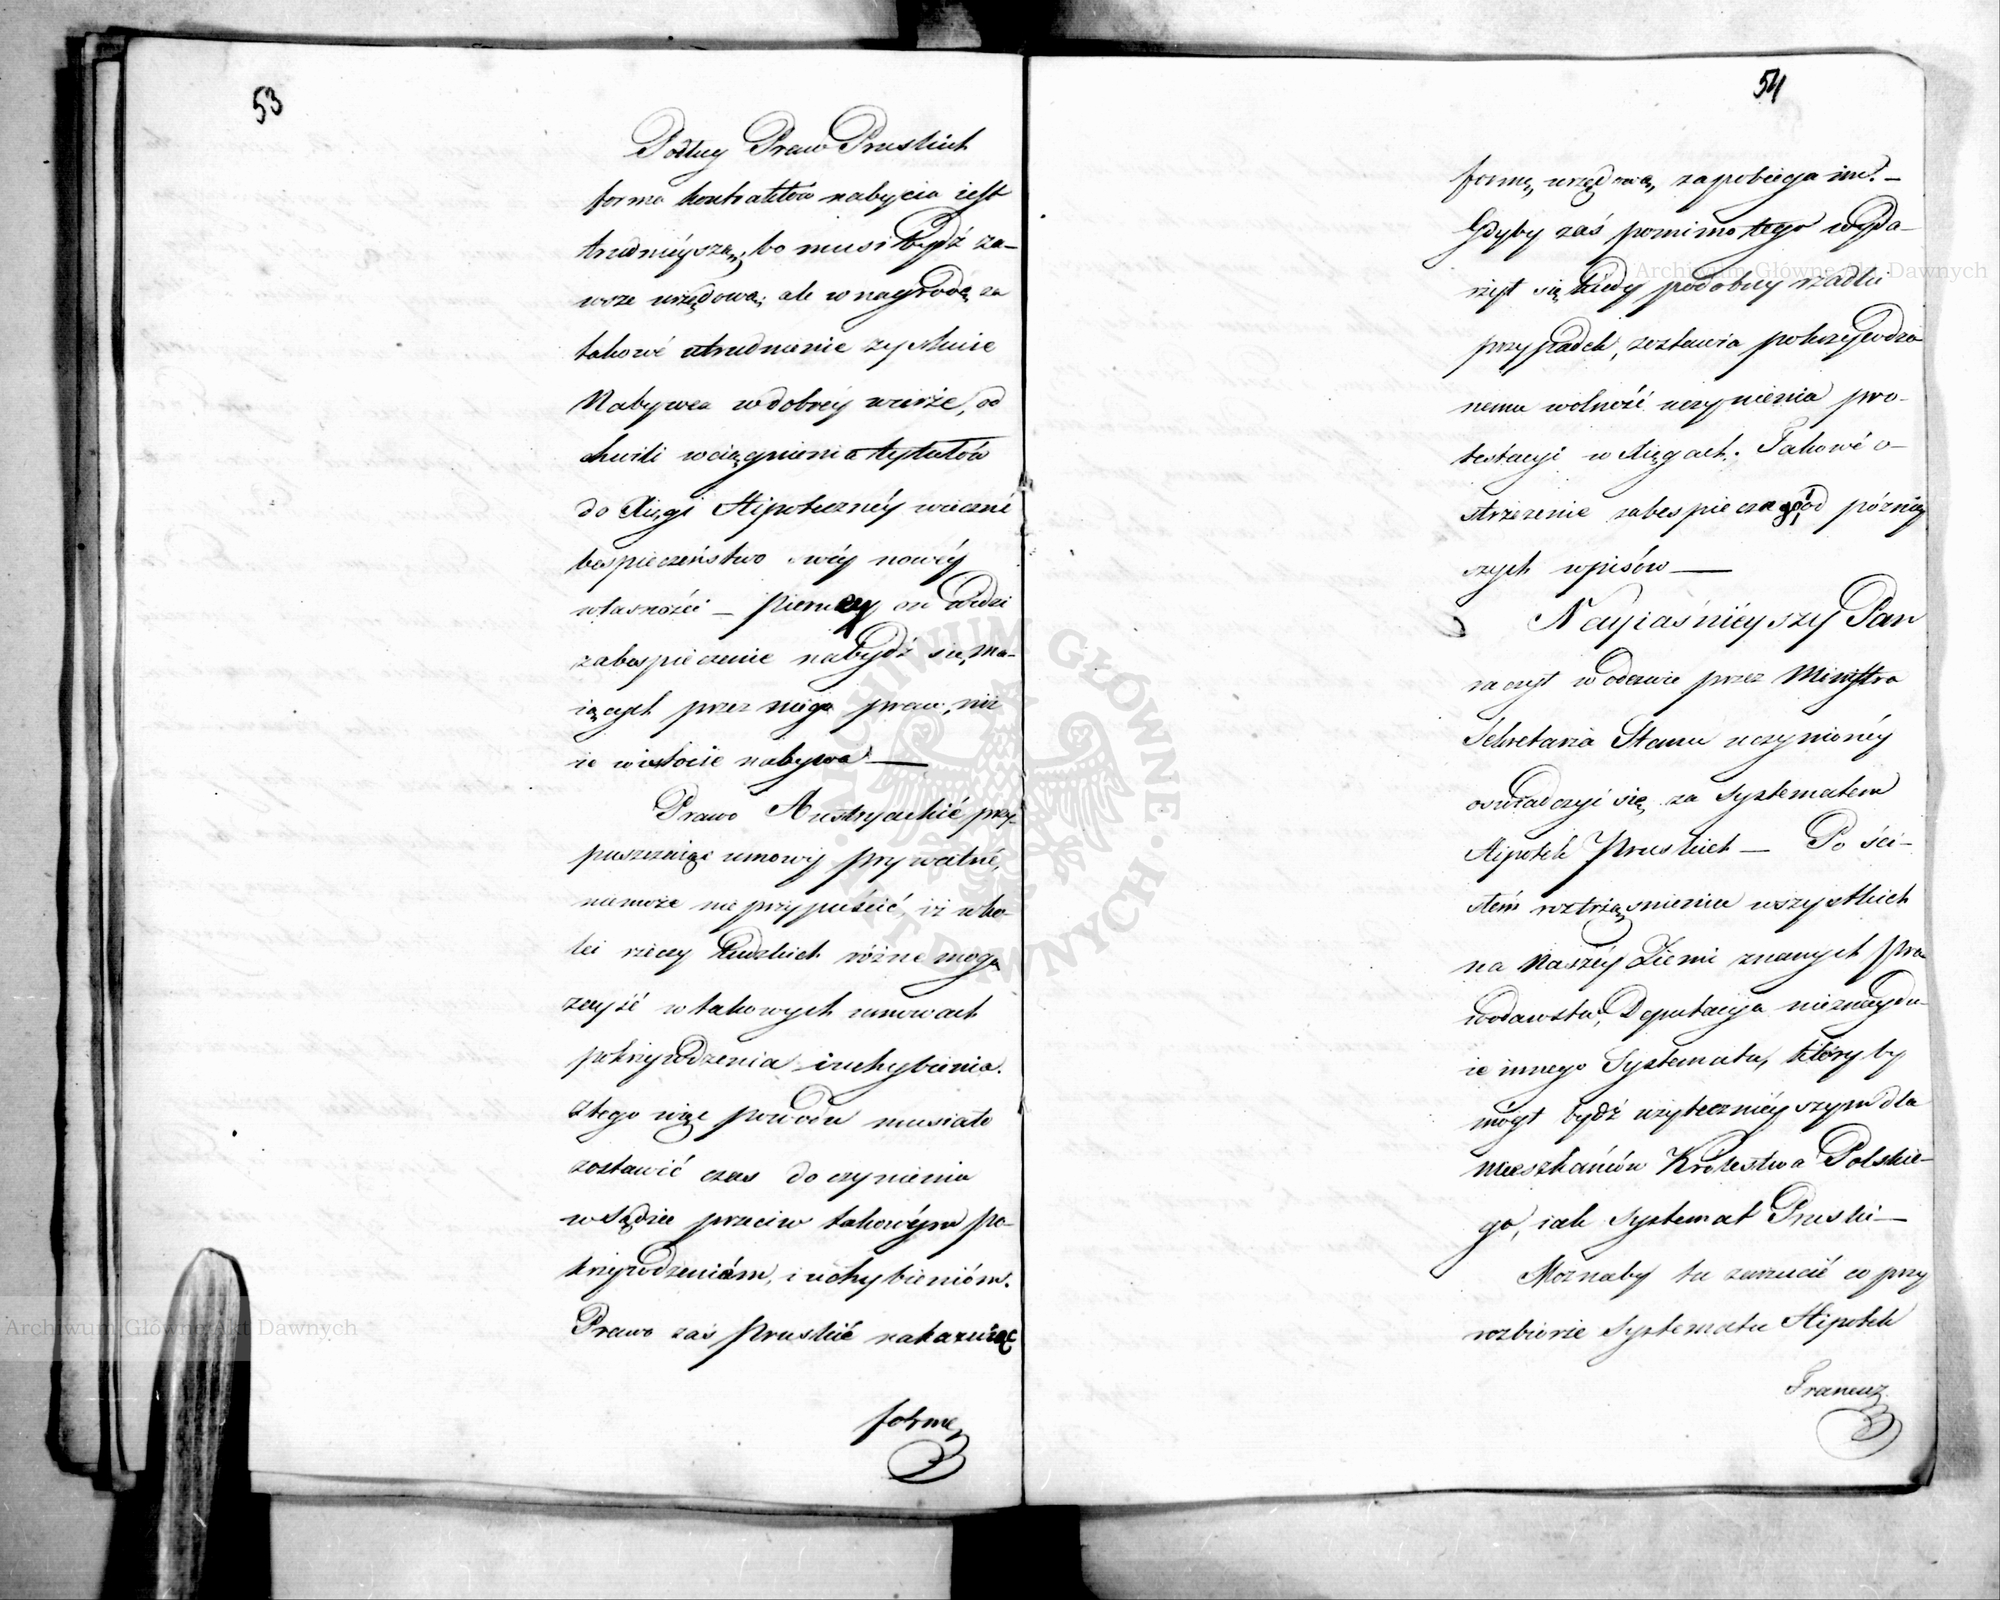 53
Podług Praw Pruskich
forma kontraktów nabycia iest
trudnieyszą, bo musi bydź za-
wsze urzędową; ale w nagrodę za
takowé utrudnienie zyskuie
Nabywca w dobréy wierże, od
chwili wciągnienia tytułów
do Xięgi Hipotecznéy wieczné
bespieczeństwo swéy nowéy
własności – pierwey on widzi
zabespieczenie nabydź się ma-
iących przez niego praw, niż
ie w istocie nabywa —
Prawo Austryackié przy-
puszczaiąc umowy prywatné,
niemoże nie przypuścić, iż w ko-
lei rzeczy ludzkich różne mogą
zayść w takowych umowach
pokrzywdzenia i uchybienia.
z tego więc powodu musiało
zostawić czas do czynienia
w Sądzie przeciw takowym po-
krzywdzeniom, i uchybieniom.
Prawo zaś Pruskié nakazuiąc
formę
54
formę urzędową, zapobiega im. –
Gdyby zaś pomimo tego wyda-
rzył się kiedy podobny rzadki
przypadek, zostawia pokrzywdzo-
nemu wolność uczynienia pro-
testacyi w Xięgach. Takowé o-
strzeżenie zabespiecza go od późniey
szych wpisów —
Nayiaśnieyszy Pan
raczył w odezwie przez Ministra
Sekretarza Stanu uczynionéy
oswiadczyć się za Systematem
Hipotek Pruskich — Po ści-
słém roztrząśnieniu wszystkich
na Naszéy Ziemi znanych pra-
wodawstw, Deputacya nieznaydu-
ie innego Systematu, któryby
mógł bydź użytecznieyszym dla
mieszkańców Królestwa Polskie-
go, iak Systemat Pruski —
Możnaby tu zarzucić co przy
rozbiorze Systematu Hipotek
Francuz
Archiwum Główne Akt Dawnych
Archiwum Główne Akt Dawnych
ARCHIWUM GŁÓWNE · AKT DAWNYCH ·